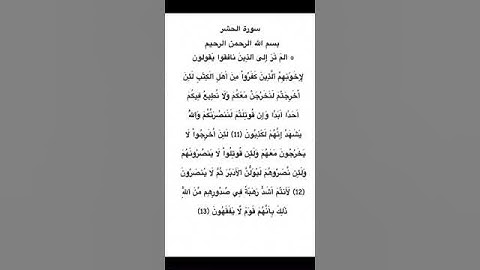 سورة الحشر
بسم الله الرحمن الرحيم
۞ المْ تَرَ إلى الذِينَ نافَقوا يَقولون
لِإِخْوَنِهِمُ الَّذِينَ كَفَرُواْ مِنْ أَهْلِ الْكِتَبِ لَئِنْ
أُخْرِجْتُمْ لَنَخْرُجَنَّ مَعَكُمْ وَلَا نُطِيعُ فِيكُمْ
أَحَدًا أَبَدًا وَإِن قُوتِلْتُمْ لَنَنصُرَنَّكُمْ وَاللَّهُ
يَشْهَدُ إِنَّهُمْ لَكَذِبُونَ (11) لَئِنْ أُخْرِجُواْ لَا
يَخْرُجُونَ مَعَهُمْ وَلَئِن قُوتِلُواْ لَا يَنصُرُونَهُمْ
وَلَئِن نَّصَرُوهُمْ لَيُوَلُّنَّ الْأَدْبَرَ ثُمَّ لَا يُنصَرُونَ
(12) لَأَنتُمْ أَشَدُّ رَهْبَةً فِي صُدُورِهِم مِّنَ اللَّهِ
ذَلِكَ بِأَنَّهُمْ قَوْمٌ لَّا يَفْقَهُونَ (13)